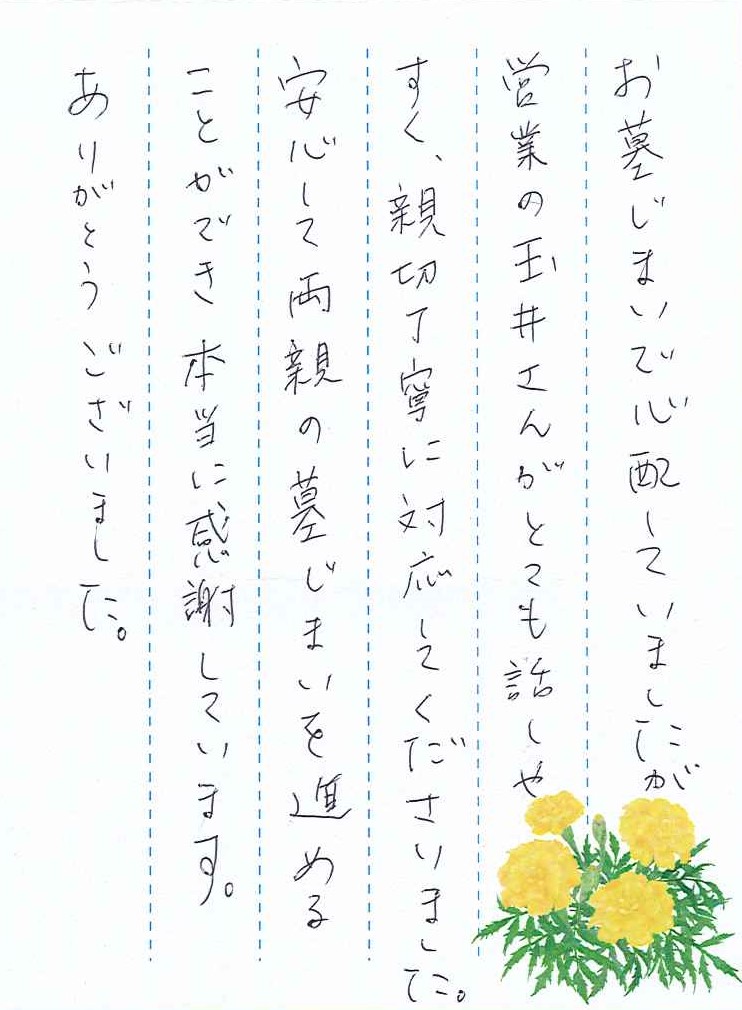 お墓じまいで心配していましたが
営業の玉井さんがとても話しや
すく、親切丁寧に対応してくださいました。
安心して両親の墓じまいを進める
ことができ本当に感謝しています。
ありがとうございました。